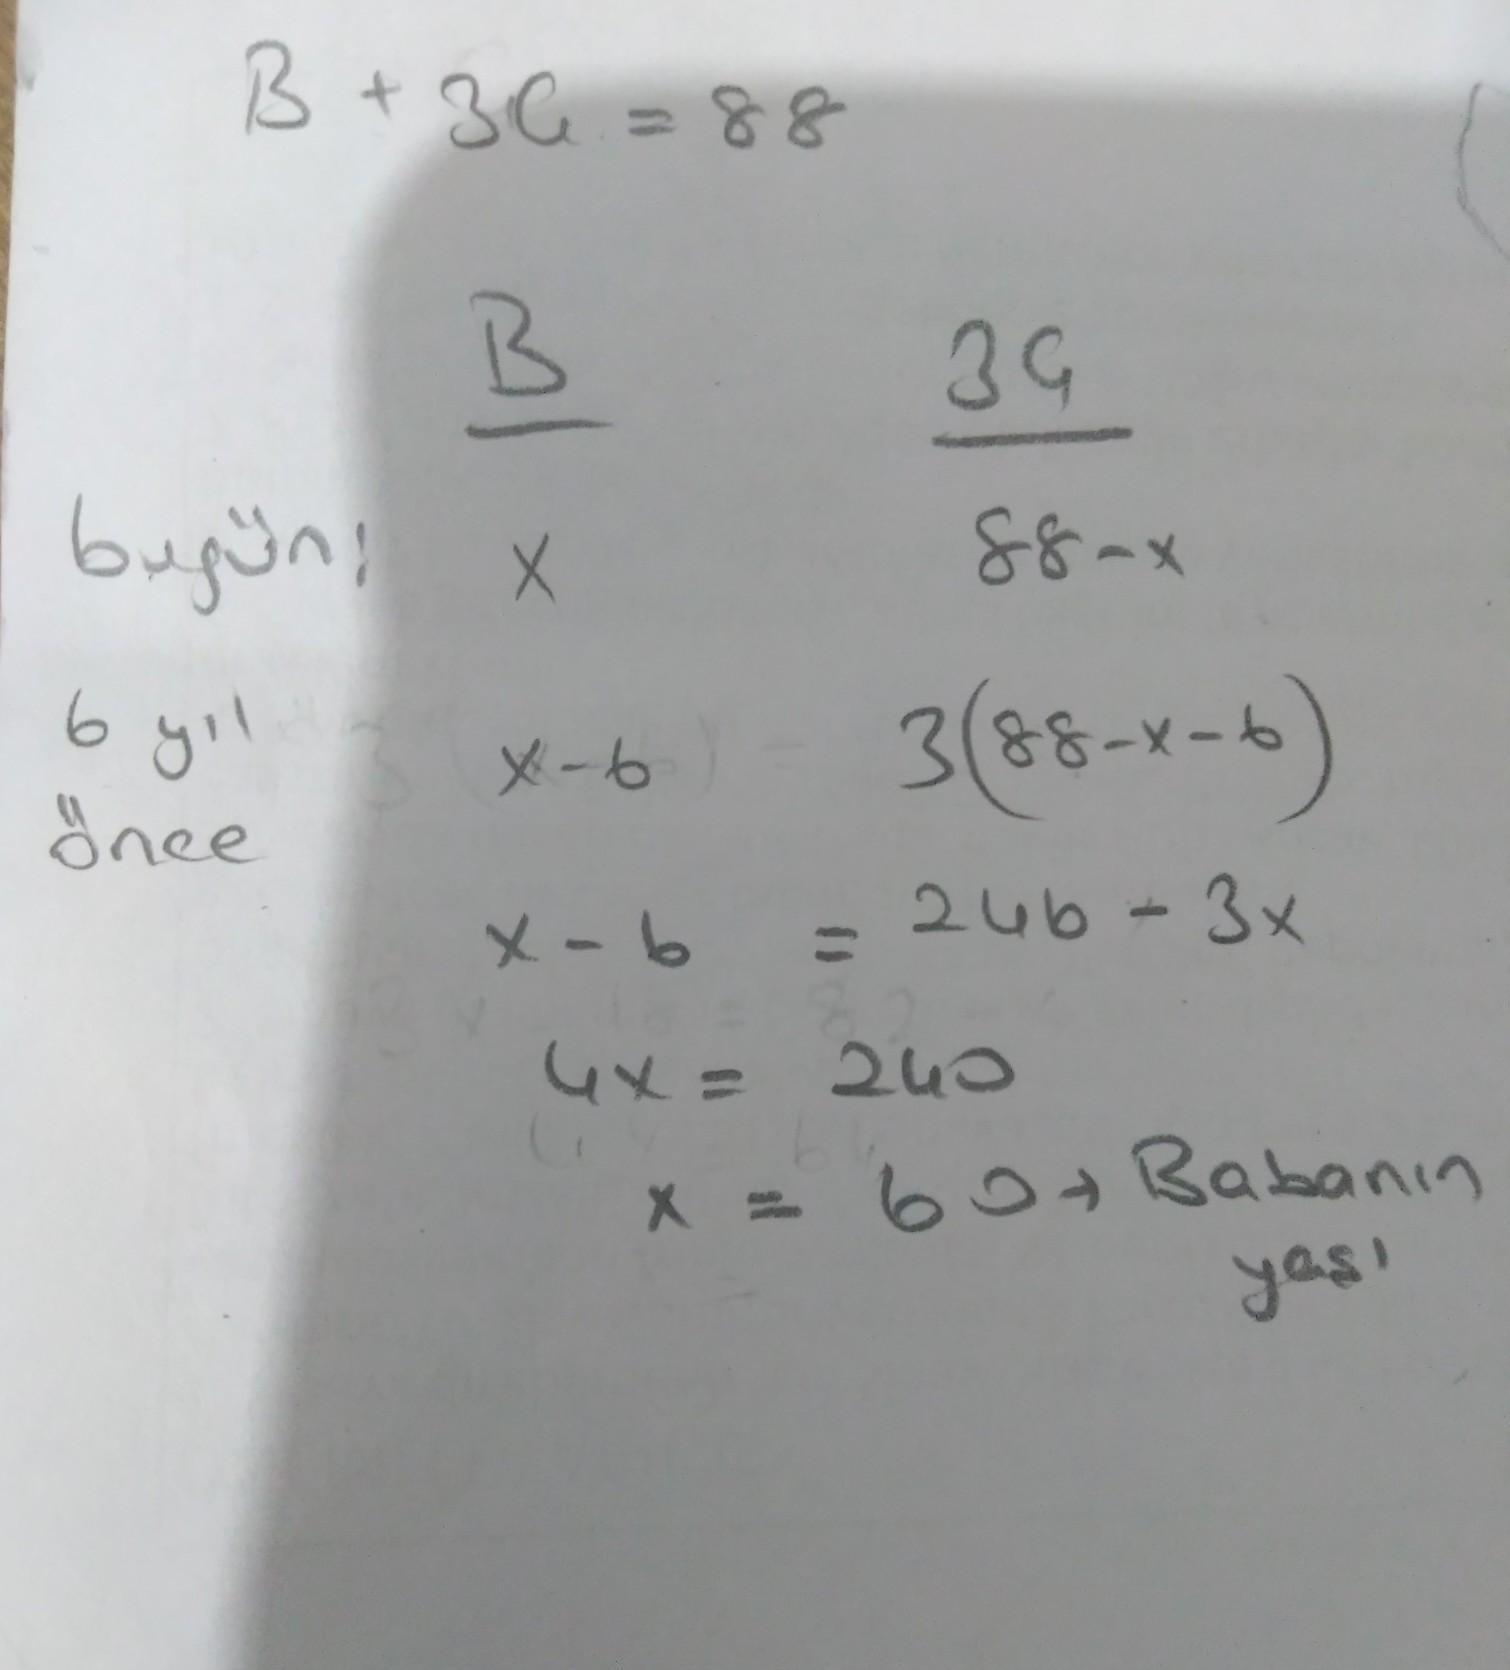 B + 3Ç = 88
B 3Ç
bugün: x 88-x
6 yıl
önce x-6 3(88-x-6)
x-6 = 246-3x
4x = 240
x = 60 → Babanın
yası